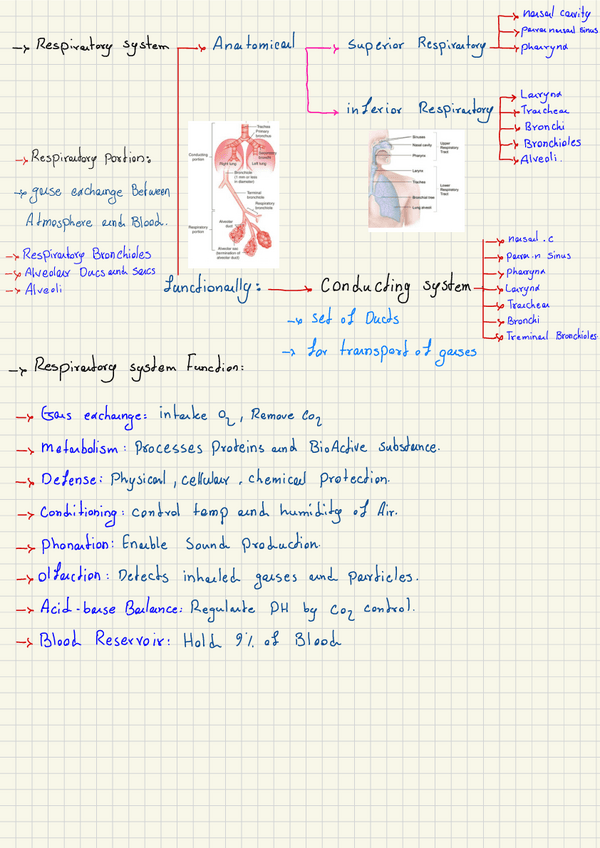 → Respiratory system → Anatomical → Superior Respiratory
→ nasal cavity
→ para nasal sinus
→ pharynx
→ inferior Respiratory
→ Larynx
→ Trachea
→ Bronchi
→ Bronchioles
→ Alveoli.
→ Respiratory Portion:
→ gase exchange Between
Atmosphere and Blood.
→ Respiratory Bronchioles
→ Alveolar Ducs and sacs
→ Alveoli
Trachea
Primary
bronchus
Conducting
portion
Right lung
Left lung
Bronchiole
(1 mm or less
in diameter)
Terminal
bronchiole
Respiratory
bronchiole
Respiratory
portion
Alveolar
duct
Alveolar sac
(termination of
alveolar duct)
Sinuses
Nasal cavity
Pharynx
Upper
Respiratory
Tract
Larynx
Trachea
Lower
Respiratory
Tract
Bronchial tree
Lung
functionally: → Conducting system
→ nasal . c
→ para . n sinus
→ pharynx
→ Larynx
→ Trachea
→ Bronchi
→ Treminal Bronchioles
→ set of Ducts
→ for transport of gases
→ Respiratory system Function:
→ Gas exchange: intake O₂, Remove CO₂
→ metabolism: Processes Proteins and BioActive substance.
→ Defense: Physical, cellular, chemical Protection.
→ Conditioning: control temp and humidity of Air.
→ Phonation: Enable Sound Production.
→ olfaction: Detects inhaled gases and particles.
→ Acid-base Balance: Regulate PH by CO₂ control.
→ Blood Reservoir: Hold 9% of Blood